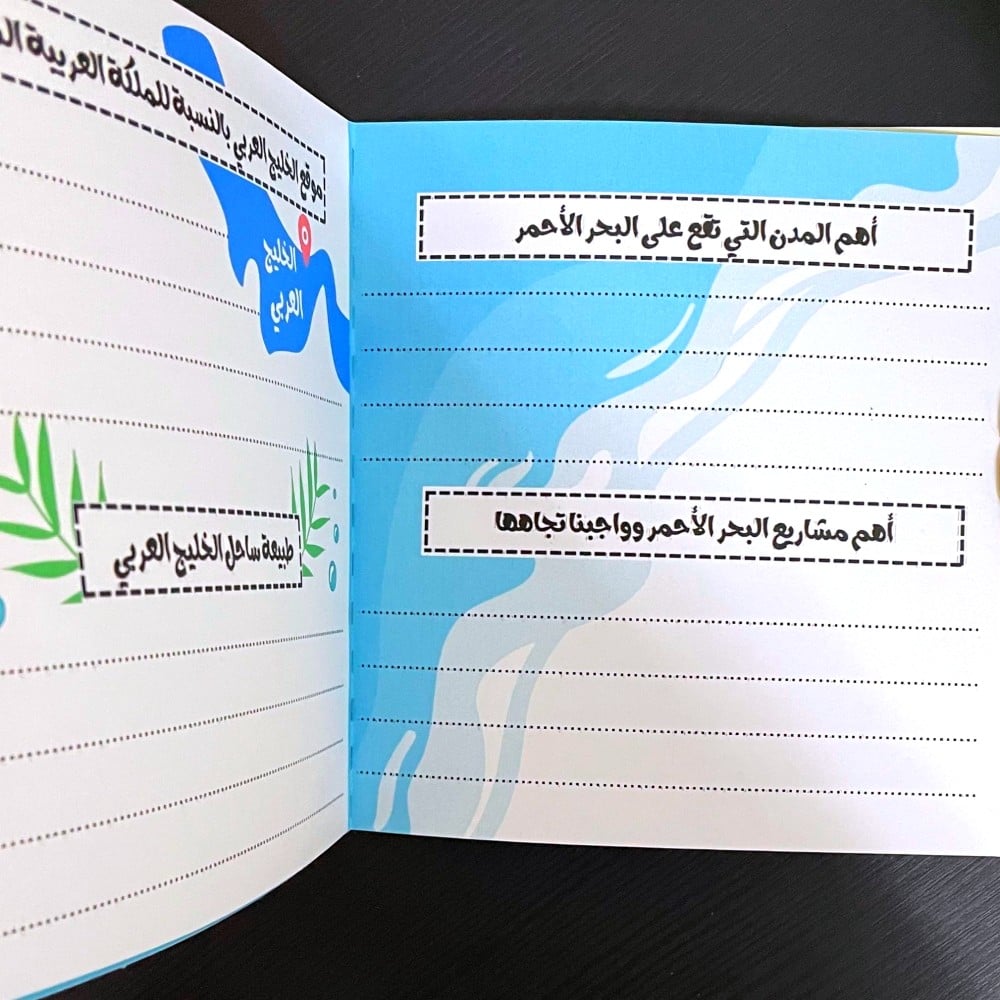 أهم المدن التي تقع على البحر الأحمر
أهم مشاريع البحر الأحمر وواجبنا تجاهها
موقع الخليج العربي بالنسبة للملكة العربية
الخليج
العربي
طبيعة ساحل الخليج العربي